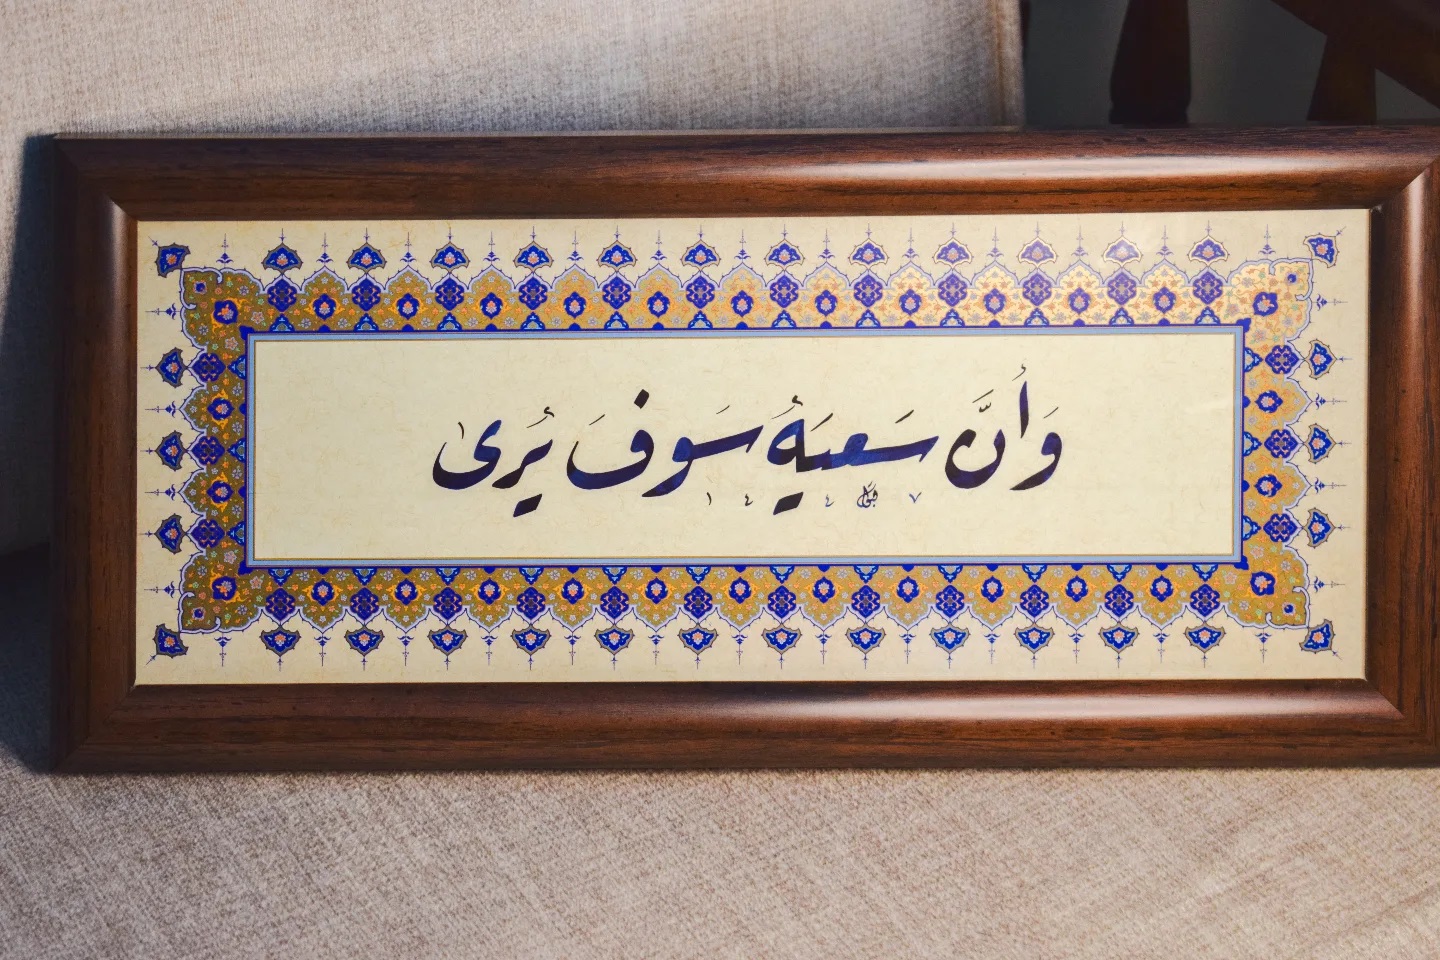 وَأَنَّ سَعيَهُ سَوفَ يُرىٰ